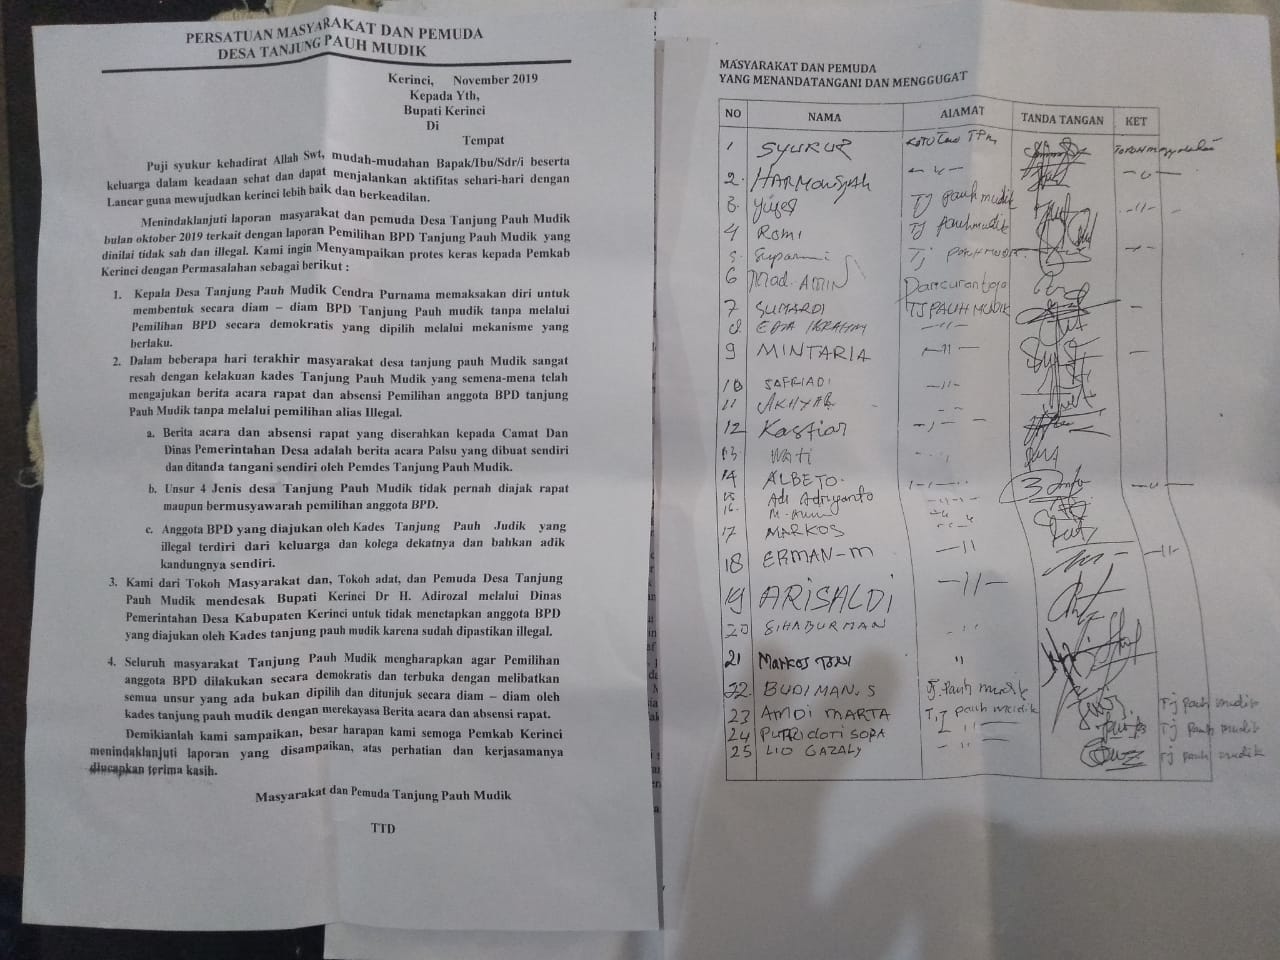 PERSATUAN MASYARAKAT DAN PEMUDA
DESA TANJUNG PAUH MUDIK
Kerinci, November 2019
Kepada Yth,
Bupati Kerinci
Di
Tempat
Puji syukur kehadirat Allah Swt, mudah-mudahan Bapak/Ibu/Sdr/i beserta
keluarga dalam keadaan sehat dan dapat menjalankan aktifitas sehari-hari dengan
Lancar guna mewujudkan kerinci lebih baik dan berkeadilan.
Menindaklanjuti laporan masyarakat dan pemuda Desa Tanjung Pauh Mudik
bulan oktober 2019 terkait dengan laporan Pemilihan BPD Tanjung Pauh Mudik yang
dinilai tidak sah dan illegal. Kami ingin Menyampaikan protes keras kepada Pemkab
Kerinci dengan Permasalahan sebagai berikut :
1. Kepala Desa Tanjung Pauh Mudik Cendra Purnama memaksakan diri untuk
membentuk secara diam – diam BPD Tanjung Pauh mudik tanpa melalui
Pemilihan BPD secara demokratis yang dipilih melalui mekanisme yang
berlaku.
2. Dalam beberapa hari terakhir masyarakat desa tanjung pauh Mudik sangat
resah dengan kelakuan kades Tanjung Pauh Mudik yang semena-mena telah
mengajukan berita acara rapat dan absensi Pemilihan anggota BPD tanjung
Pauh Mudik tanpa melalui pemilihan alias Illegal.
a. Berita acara dan absensi rapat yang diserahkan kepada Camat Dan
Dinas Pemerintahan Desa adalah berita acara Palsu yang dibuat sendiri
dan ditanda tangani sendiri oleh Pemdes Tanjung Pauh Mudik.
b. Unsur 4 Jenis desa Tanjung Pauh Mudik tidak pernah diajak rapat
maupun bermusyawarah pemilihan anggota BPD.
c. Anggota BPD yang diajukan oleh Kades Tanjung Pauh Judik yang
illegal terdiri dari keluarga dan kolega dekatnya dan bahkan adik
kandungnya sendiri.
3. Kami dari Tokoh Masyarakat dan, Tokoh adat, dan Pemuda Desa Tanjung
Pauh Mudik mendesak Bupati Kerinci Dr H. Adirozal melalui Dinas
Pemerintahan Desa Kabupaten Kerinci untuk tidak menetapkan anggota BPD
yang diajukan oleh Kades tanjung pauh mudik karena sudah dipastikan illegal.
4. Seluruh masyarakat Tanjung Pauh Mudik mengharapkan agar Pemilihan
anggota BPD dilakukan secara demokratis dan terbuka dengan melibatkan
semua unsur yang ada bukan dipilih dan ditunjuk secara diam – diam oleh
kades tanjung pauh mudik dengan merekayasa Berita acara dan absensi rapat.
Demikianlah kami sampaikan, besar harapan kami semoga Pemkab Kerinci
menindaklanjuti laporan yang disampaikan, atas perhatian dan kerjasamanya
diucapkan terima kasih.
Masyarakat dan Pemuda Tanjung Pauh Mudik
TTD
MASYARAKAT DAN PEMUDA
YANG MENANDATANGANI DAN MENGGUGAT
NO NAMA AlAMAT TANDA TANGAN KET
1 SYUKUR
2. HARMONSYAH
3. Tj pauh mudik
4 Romi Tj pauh mudik
5.
6 Mad. AMIN
7 SUMARDI TJ PAUH MUDIK
8 EDIA IBRAHIM
9 MINTARIA
10 SAFRIADI
11 AKHYAR
12 Kastiar
13. Wati
14 ALBETO.
15 Adi Adriyanto
16.
17 MARKOS
18 ERMAN-M
19 ARISALDI
20 SIHABURMAN
21 Markos Tony
22. BUDIMAN. S Tj. Pauh mudik
23 AMDI MARTA Tj pauh mudik Tj pauh mudik
24 Tj pauh mudik
25 LIO GAZALY Tj pauh mudik